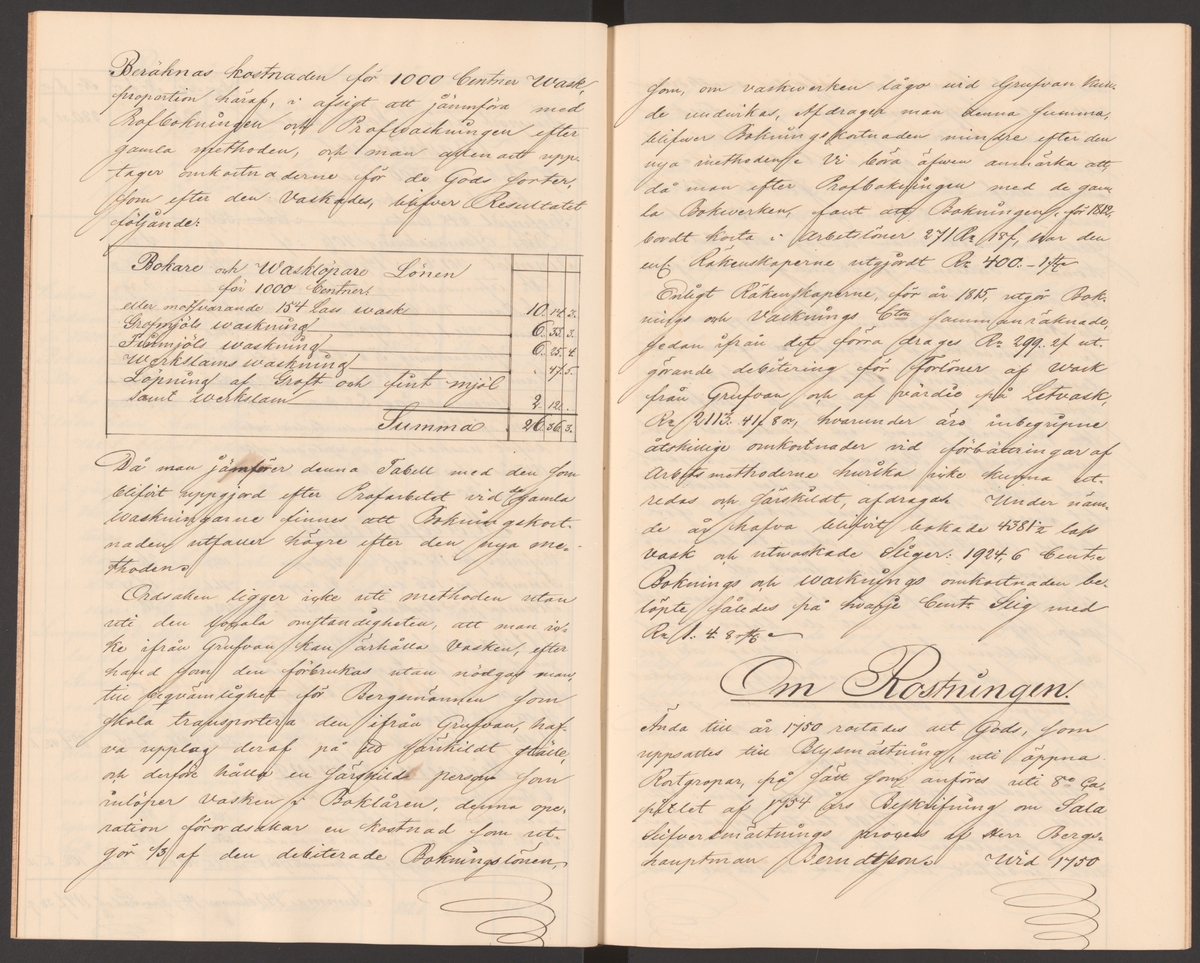 Beräknas kostnaden för 1000 Centner Wask,
proportion häraf, i afsigt att jämnföra med
Profbokningen och Profwaskningen efter
gamla methoden, och man allenast upp-
tager omkostnaderne för de Gods sorter,
som efter den vaskades, blifver Resultatet
följande:
Bokare och Wasklöpare Lönen
för 1000 Centner:
eller motsvarande 154 lass wask 10. 14. 3.
Grofmjöls waskning 6. 33. 3.
Finmjöls waskning 6. 25. 4.
Werkslams waskning . 47. 5.
Löpning af Groft och fint mjöl
samt werkslam 2. 12. .
Summa 26. 36. 3.
Då man jämförer denna Tabell med den som
blifvit uppgjord efter Profarbetet vid de gamla
waskningarne finnes att Bokningskost-
naden utfaller högre efter den nya me-
thoden.
Orsaken ligger icke uti methoden utan
uti den locala omständigheten, att man ic-
ke ifrån Grufvan kan ärhålla Vasken, efter
hand som den förbrukas utan nödgas man,
till beqvämlighet för Bergsmännen som
skola transportera den ifrån Grufvan, haf-
va upplag deraf på ett särskildt ställe,
och derföre hålla en särskild person som
inlöper vasken i Boklåren, denna ope-
ration förordsakar en kostnad som ut-
gör 1/3 af den debiterade Bokningslönen,
som, om vaskverken lågo vid Grufvan kun-
de undvikas, Afdrager man denna summa,
blifwer Bokningskostnaden mindre efter den
nya methoden. Vi böra äfwen anmärka att,
då man efter Profbokningen med de gam-
la Bokwerken, fant att Bokningen, för 1812,
bordt kosta i Arbetslöner 271 Rz 18 f, war den
enl. Räkenskaperne utgjordt Rz 400. - 1
Enligt Räkenskaperne, för år 1815, utgör Bok-
nings och Vasknings Ctm sammanräknade,
sedan ifrån det förra drages Rz 299. 2 f ut-
görande debitering för Forlöner af Wask
från Grufvan och af värdie på Letvask,
Rz 2113. 41 f 8 rs, hvarunder äro inbegripne
åtskillige omkostnader vid förbättringar af
Arbets methoderne hvilka icke kunna ut-
redas och särskildt, afdragas. Under näm-
de år hafva blifvit bokade 4381 1/2 lass
vask och utwaskade Sliger: 1924,6 Centr
Boknings och wasknings omkostnaden be-
löpte således på hvarje Centr Slig med
Rz 1. 4. 8
Om Rostningen.
Ända till år 1750 rostades allt Gods, som
uppsattes till Blysmältning, uti öppna
Rostgropar, på sätt som anföres uti 8de Ca-
pitlet af 1754 års Beskrifning om Sala
Silfversmältnings process af Herr Bergs-
hauptman Berndtson. Wid 1750